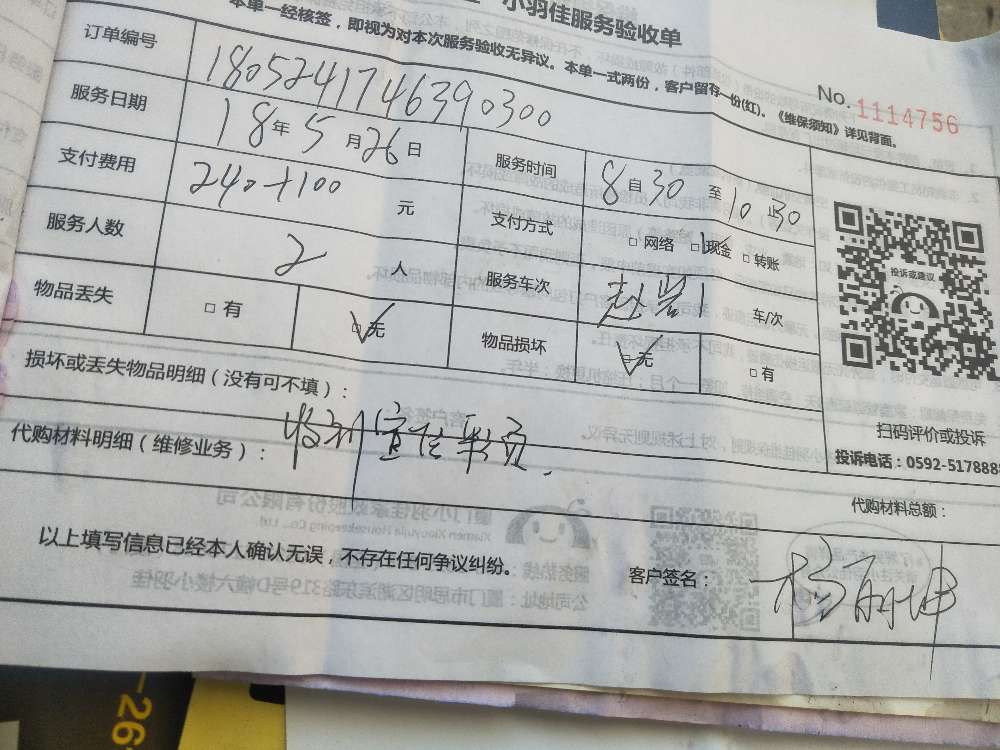 小羽佳服务验收单
本单一经核签，即视为对本次服务验收无异议。本单一式两份，客户留存一份(红)。《维保须知》详见背面。
No. 1114756
订单编号 1805241746390300
服务日期 18年5月26日 服务时间 8自30至10点30
支付费用 240+100元 支付方式 □网络 □现金 □转账
服务人数 2人 服务车次 车/次
物品丢失 □有 □无 物品损坏 □无 □有
投诉或建议
扫码评价或投诉
投诉电话：0592-5178888
损坏或丢失物品明细（没有可不填）：
代购材料明细（维修业务）：
代购材料总额：
以上填写信息已经本人确认无误，不存在任何争议纠纷。
客户签名：
-26